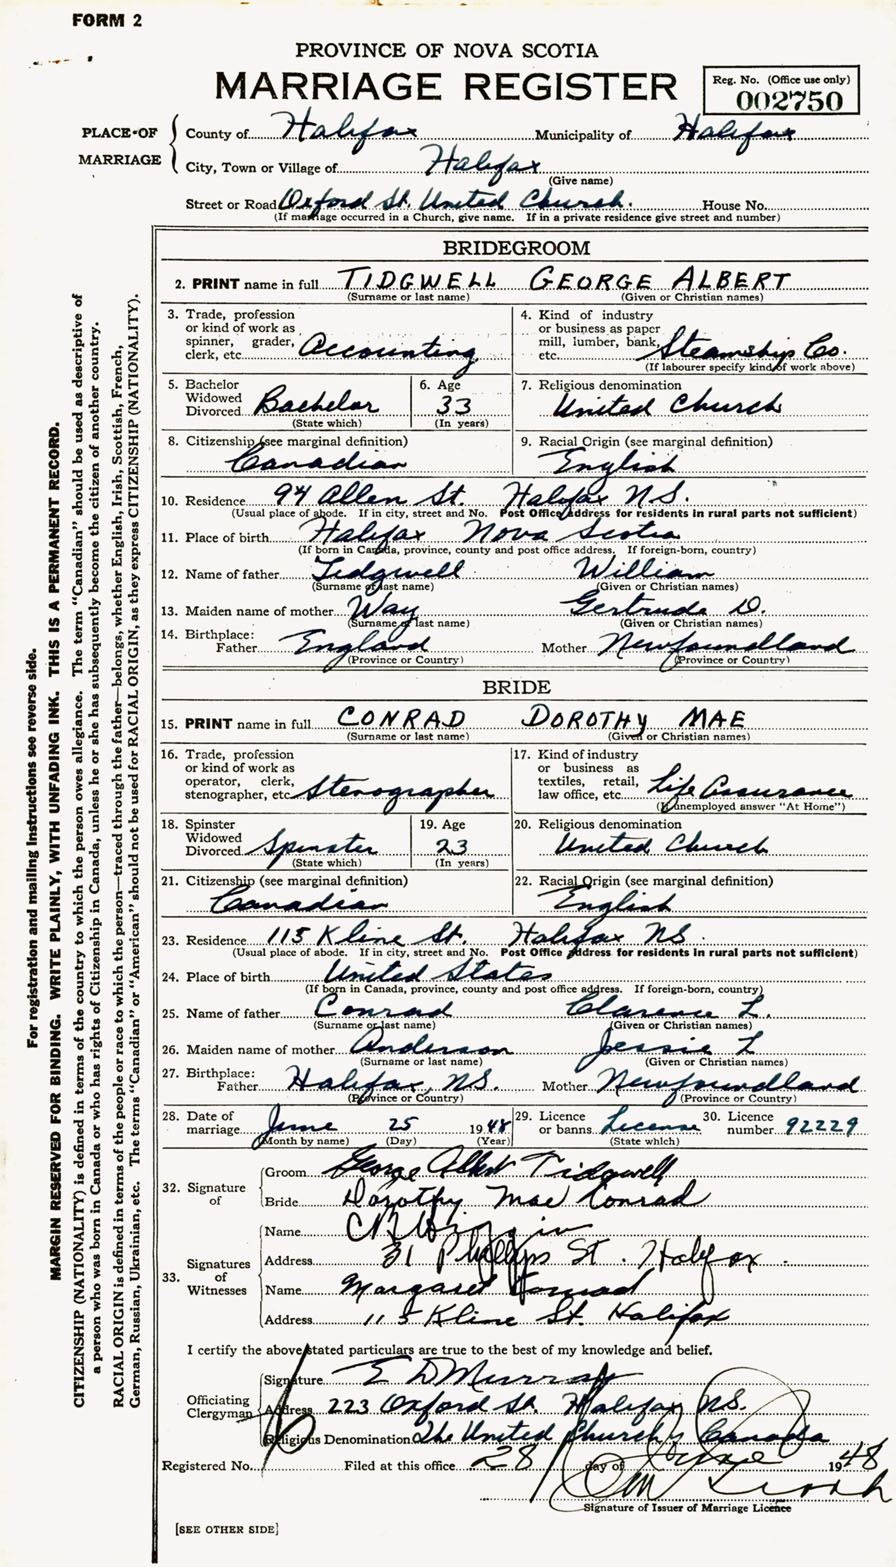 FORM 2
PROVINCE OF NOVA SCOTIA
MARRIAGE REGISTER
Reg. No. (Office use only)
002750
PLACE OF MARRIAGE
County of Halifax Municipality of Halifax
City, Town or Village of Halifax
(Give name)
Street or Road Oxford St. United Church. House No.
(If marriage occurred in a Church, give name. If in a private residence give street and number)
BRIDEGROOM
2. PRINT name in full TIDGWELL GEORGE ALBERT
(Surname or last name) (Given or Christian names)
3. Trade, profession or kind of work as spinner, grader, clerk, etc. Accounting
4. Kind of industry or business as paper mill, lumber, bank, etc. Steamship Co.
(If labourer specify kind of work above)
5. Bachelor Widowed Divorced Bachelor
(State which)
6. Age 33
(In years)
7. Religious denomination
United Church
8. Citizenship (see marginal definition)
Canadian
9. Racial Origin (see marginal definition)
English
10. Residence 94 Allen St. Halifax N.S.
(Usual place of abode. If in city, street and No. Post Office address for residents in rural parts not sufficient)
11. Place of birth Halifax Nova Scotia
(If born in Canada, province, county and post office address. If foreign-born, country)
12. Name of father Tidgwell William
(Surname or last name) (Given or Christian names)
13. Maiden name of mother Way Gertrude D.
(Surname or last name) (Given or Christian names)
14. Birthplace:
Father England Mother Newfoundland
(Province or Country) (Province or Country)
BRIDE
15. PRINT name in full CONRAD DOROTHY MAE
(Surname or last name) (Given or Christian names)
16. Trade, profession or kind of work as operator, clerk, stenographer, etc. Stenographer
17. Kind of industry or business as textiles, retail, law office, etc. Life Assurance
(If unemployed answer "At Home")
18. Spinster Widowed Divorced Spinster
(State which)
19. Age 23
(In years)
20. Religious denomination
United Church
21. Citizenship (see marginal definition)
Canadian
22. Racial Origin (see marginal definition)
English
23. Residence 115 Kline St. Halifax NS.
(Usual place of abode. If in city, street and No. Post Office address for residents in rural parts not sufficient)
24. Place of birth United States
(If born in Canada, province, county and post office address. If foreign-born, country)
25. Name of father Conrad Clarence L.
(Surname or last name) (Given or Christian names)
26. Maiden name of mother Anderson Jessie L
(Surname or last name) (Given or Christian names)
27. Birthplace:
Father Halifax, N.S. Mother Newfoundland
(Province or Country) (Province or Country)
28. Date of marriage June 25 1948
(Month by name) (Day) (Year)
29. Licence or banns License
(State which)
30. Licence number 92229
32. Signature of
Groom George Albert Tidgwell
Bride Dorothy Mae Conrad
33. Signatures of Witnesses
Name
Address 31 Phillips St. Halifax
Name Margaret Conrad
Address 115 Kline St. Halifax
I certify the above stated particulars are true to the best of my knowledge and belief.
Officiating Clergyman
Signature E D Murray
Address 223 Oxford St. Halifax N.S.
Religious Denomination The United Church of Canada
Registered No. Filed at this office 28 day of June 1948
Signature of Issuer of Marriage Licence
[SEE OTHER SIDE]
For registration and mailing instructions see reverse side.
MARGIN RESERVED FOR BINDING. WRITE PLAINLY, WITH UNFADING INK. THIS IS A PERMANENT RECORD.
CITIZENSHIP (NATIONALITY) is defined in terms of the country to which the person owes allegiance. The term "Canadian" should be used as descriptive of
a person who was born in Canada or who has rights of Citizenship in Canada, unless he or she has subsequently become the citizen of another country.
RACIAL ORIGIN is defined in terms of the people or race to which the person—traced through the father—belongs, whether English, Irish, Scottish, French,
German, Russian, Ukrainian, etc. The terms "Canadian" or "American" should not be used for RACIAL ORIGIN, as they express CITIZENSHIP (NATIONALITY).